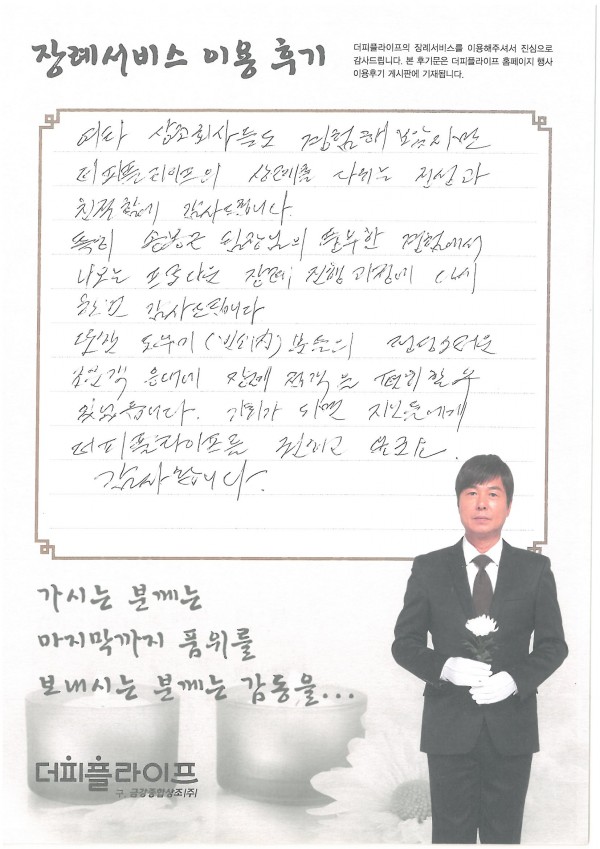 장례서비스 이용 후기
더피플라이프의 장례서비스를 이용해주셔서 진심으로
감사드립니다. 본 후기문은 더피플라이프 홈페이지 행사
이용후기 게시판에 기재됩니다.
여타 상조회사들도 경험해 보았지만
더피플라이프의 상례를 다루는 진심과
친절함에 감사드립니다.
특히 송봉근 팀장님의 풍부한 경험에서
나오는 프로다운 장례 진행 과정에 다시
한번 감사드립니다
또한 도우미 분들의 정성스러운
응대에 장례
기회가 되면 지인들에게
더피플라이프를 권하고
감사합니다.
가시는 분께는
마지막까지 품위를
보내시는 분께는 감동을...
더피플라이프
구. 금강종합상조(주)